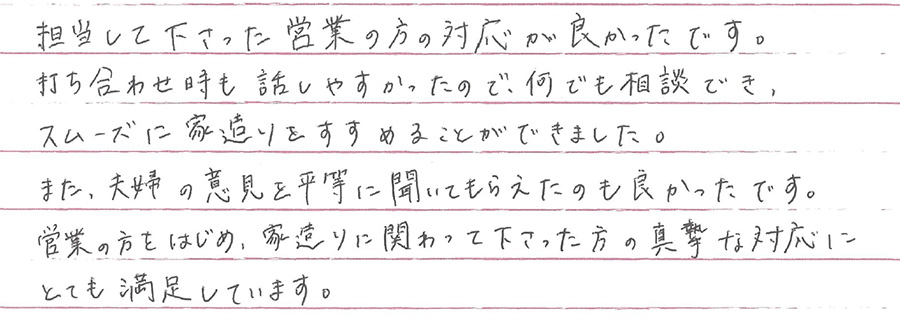 担当して下さった営業の方の対応が良かったです。
打ち合わせ時も話しやすかったので、何でも相談でき、
スムーズに家造りをすすめることができました。
また、夫婦の意見を平等に聞いてもらえたのも良かったです。
営業の方をはじめ、家造りに関わって下さった方の真摯な対応に
とても満足しています。